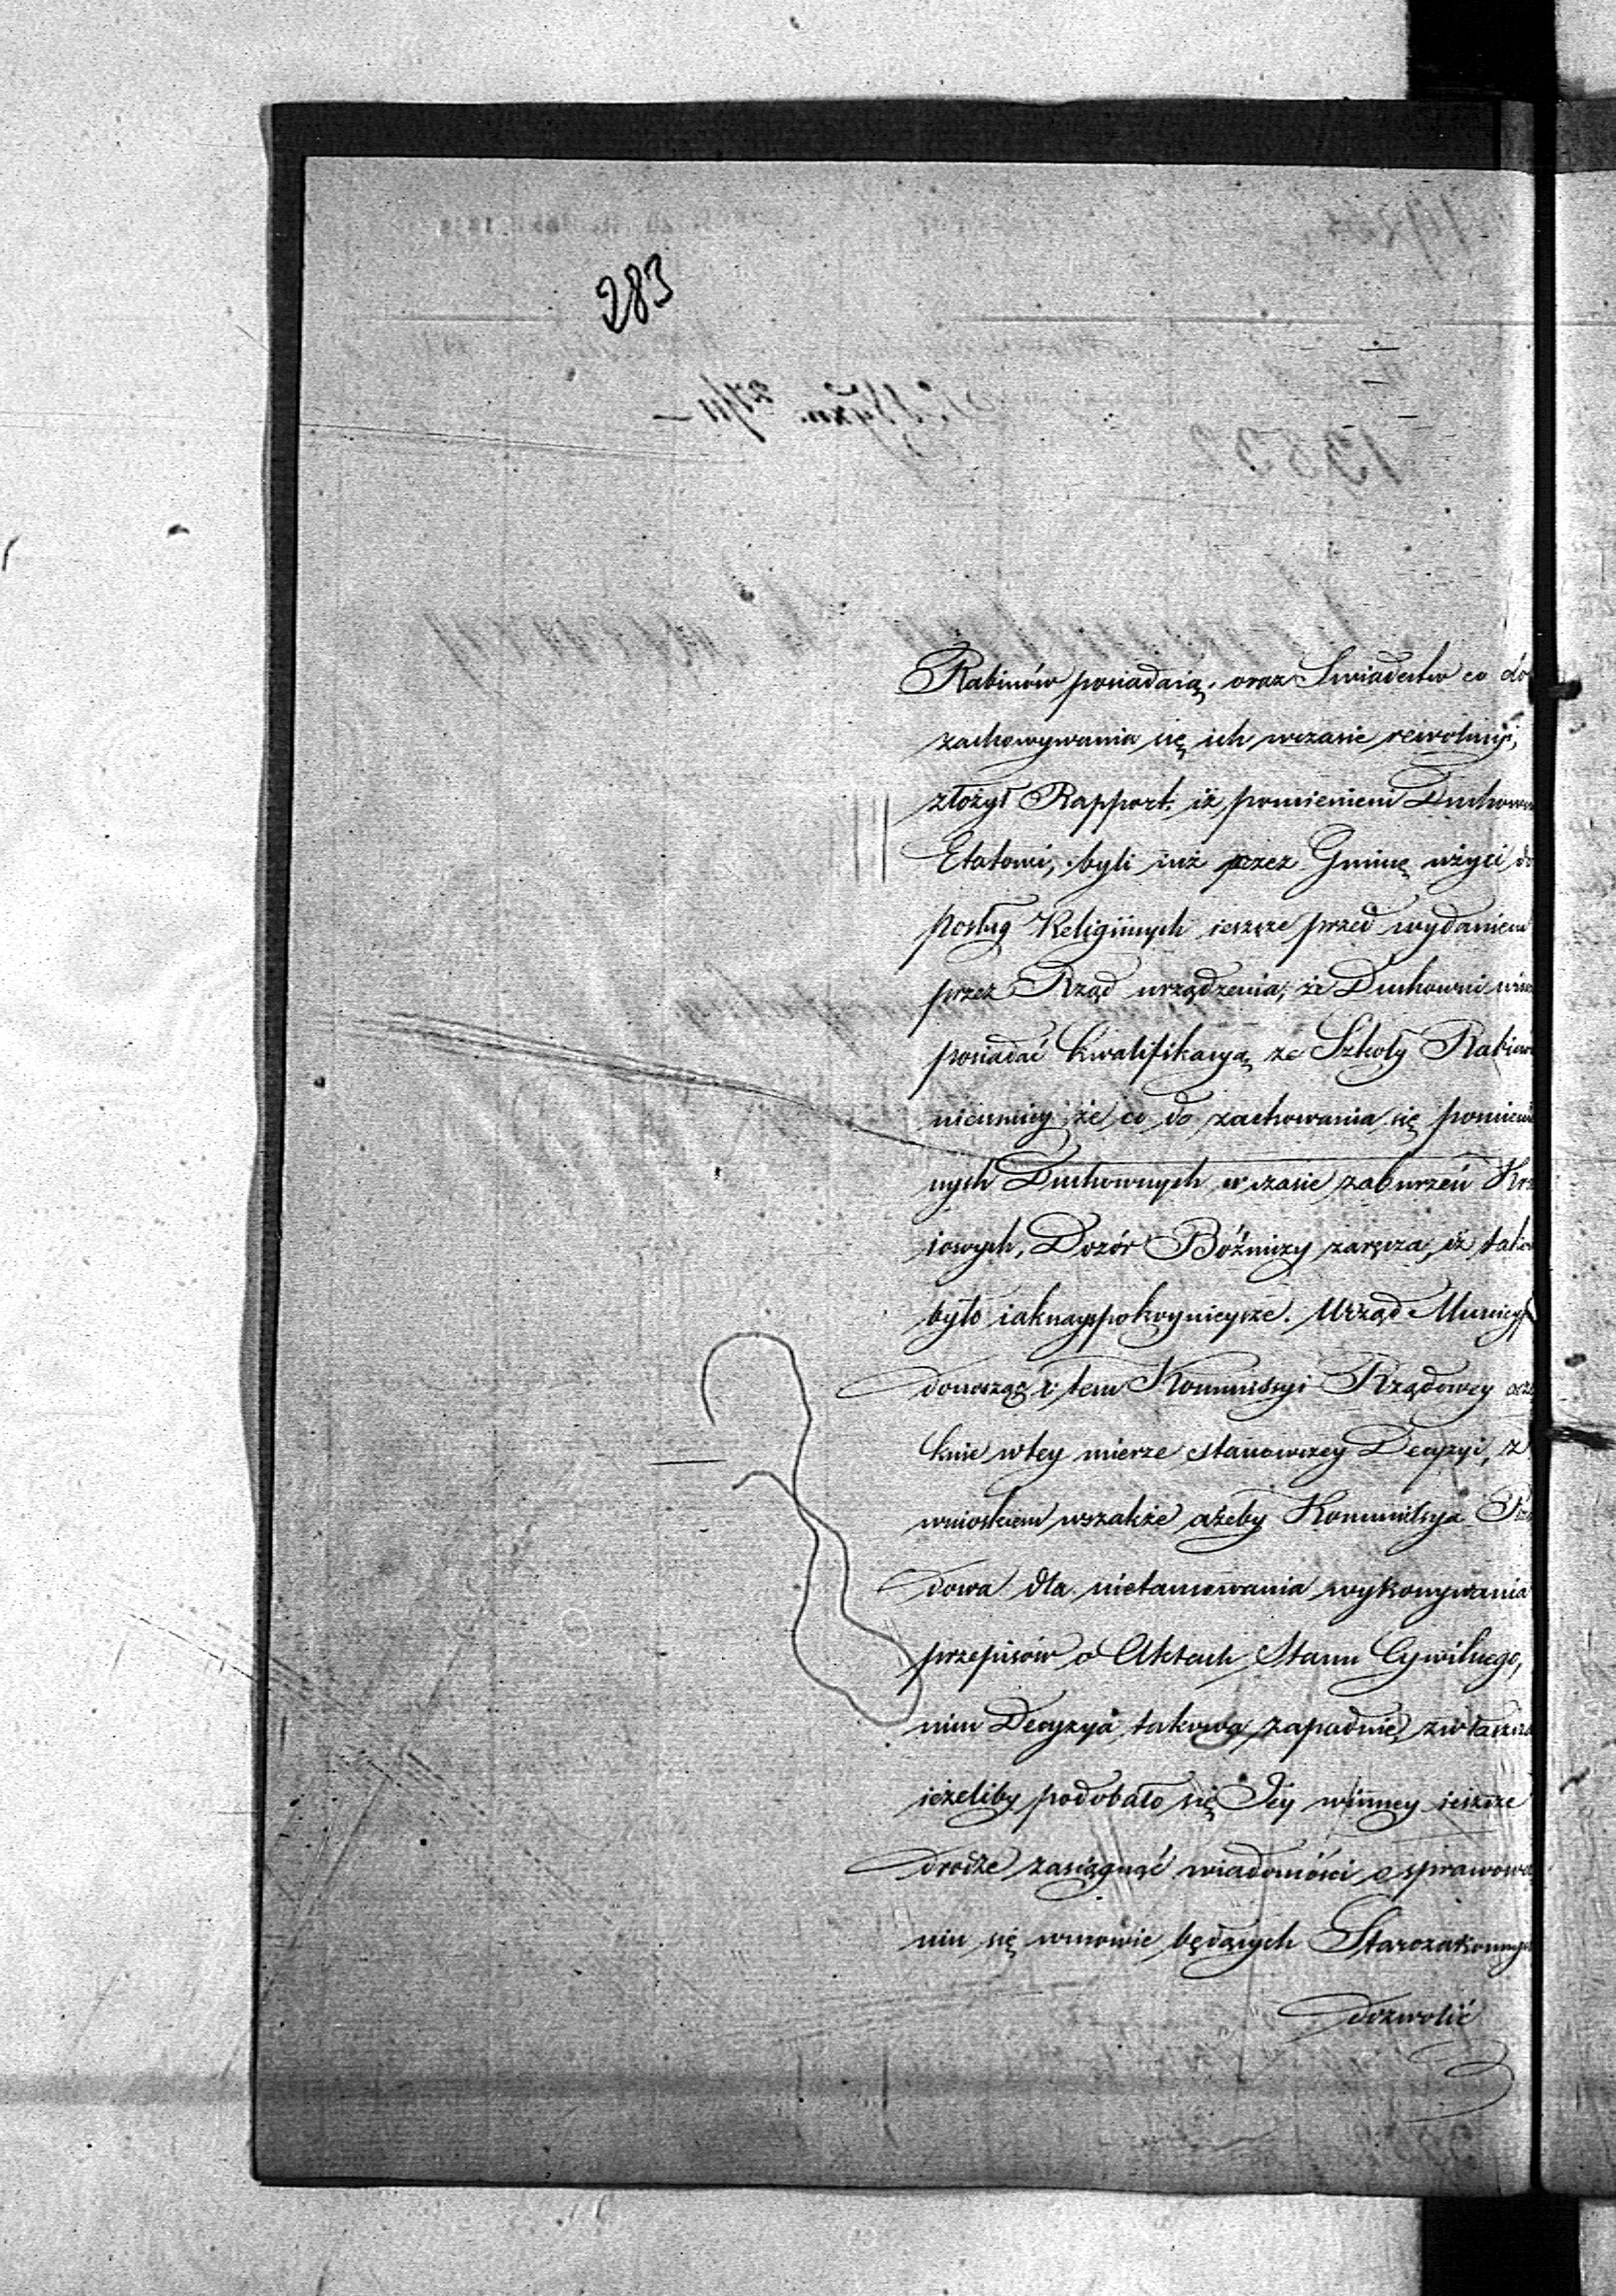 283
Rabinów posiadaią, oraz Swiadectw co do
zachowywania się ich wczasie rewolucyi,
złożył Rapport, iż pomienieni Duchowni
Etatowi, byli iuż przez Gminę użyci do
posług Religiinych ieszcze przed wydaniem
przez Rząd urządzenia, że Duchowni winni
posiadać kwalifikacyą ze Szkoły Rabinów
niemniey że co do zachowania się pomienio
nych Duchownych w czasie zaburzeń Kra
iowych, Dozór Bóżniczy zaręcza, iż takowe
było iaknayspokoynieysze. Urząd Municyp
donosząc o tem Kommissyi Rządowey ocze
kuie wtey mierze stanowczey Decyzyi, z
wnioskiem wszakże ażeby Kommissya Rzą
dowa dla nietamowania wykonywania
przepisów o Aktach Stanu Cywilnego,
nim Decyzya takowa zapadnie, zwłaszcza
ieżeliby podobało się Jey winney ieszcze
drodze zasięgnąć wiadomości o sprawowa
niu się wmowie będących Starozakonnych
dozwolić